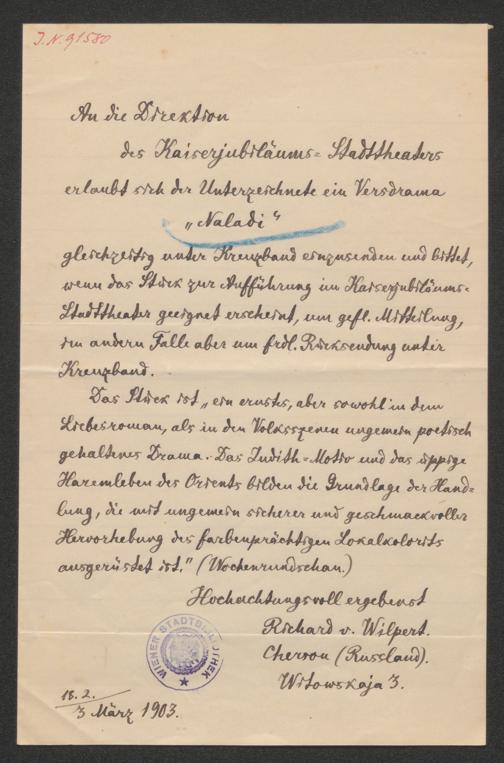 J.N. 91580
An die Direktion
des Kaiserjubiläums=Stadttheaters
erlaubt sich der Unterzeichnete ein Versdrama
„Naladi“
gleichzeitig unter Kreuzband einzusenden und bittet,
wenn das Stück zur Aufführung im Kaiserjubiläums=
Stadttheater geeignet erscheint, um gefl. Mitteilung,
im andern Falle aber um frdl. Rücksendung unter
Kreuzband.
Das Stück ist „ein ernstes, aber sowohl in dem
Liebesroman, als in den Volksszenen ungemein poetisch
gehaltenes Drama. Das Judith=Motiv und das üppige
Haremleben des Orients bilden die Grundlage der Hand=
lung, die mit ungemein sicherer und geschmackvoller
Hervorhebung des farbenprächtigen Lokalkolorits
ausgerüstet ist.“ (Wochenrundschau.)
Hochachtungsvoll ergebenst
Richard v. Wilpert.
Cherson (Russland).
Witowskaja 3.
WIENER STADTBIBLIOTHEK
18. 2.
3 März 1903.